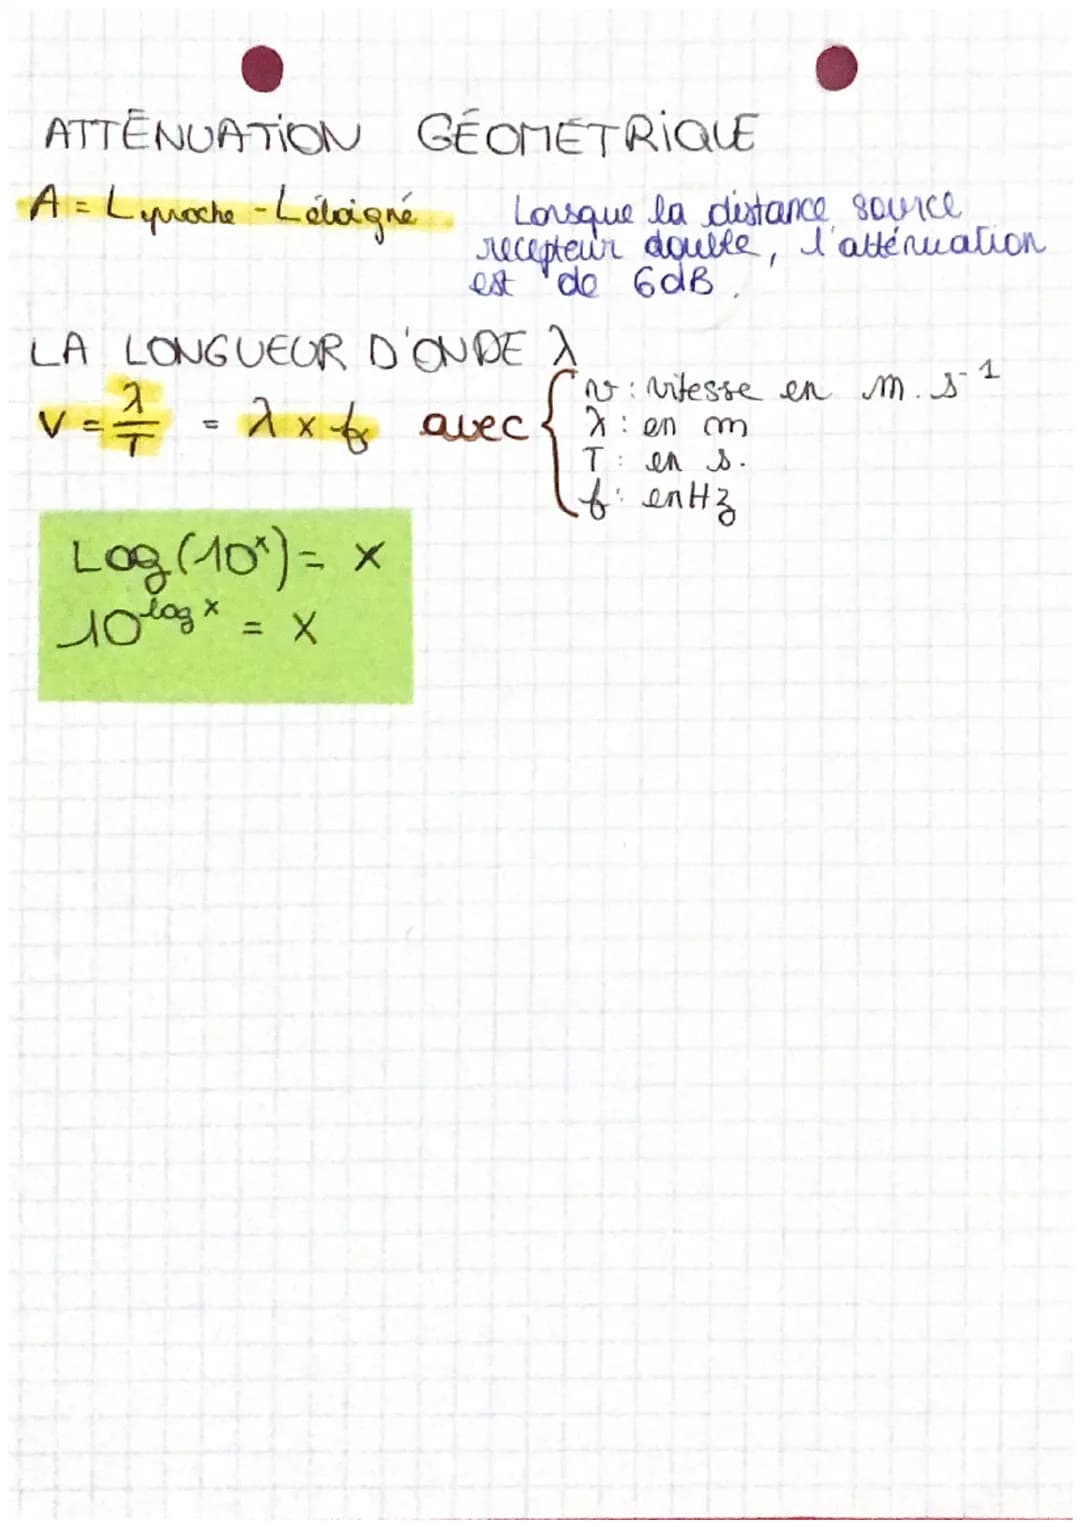 ATTÉNUATION GÉOMÉTRIQUE
A = Lproche - Léloigné
Lorsque la distance source
recepteur double, l'atténuation
est de 6dB.
LA LONGUEUR D'ONDE λ
V = λ/T = λ × f avec
v : vitesse en m.s⁻¹
λ : en m
T : en s.
f : en Hz
Log(10ˣ) = x
10^log x = x